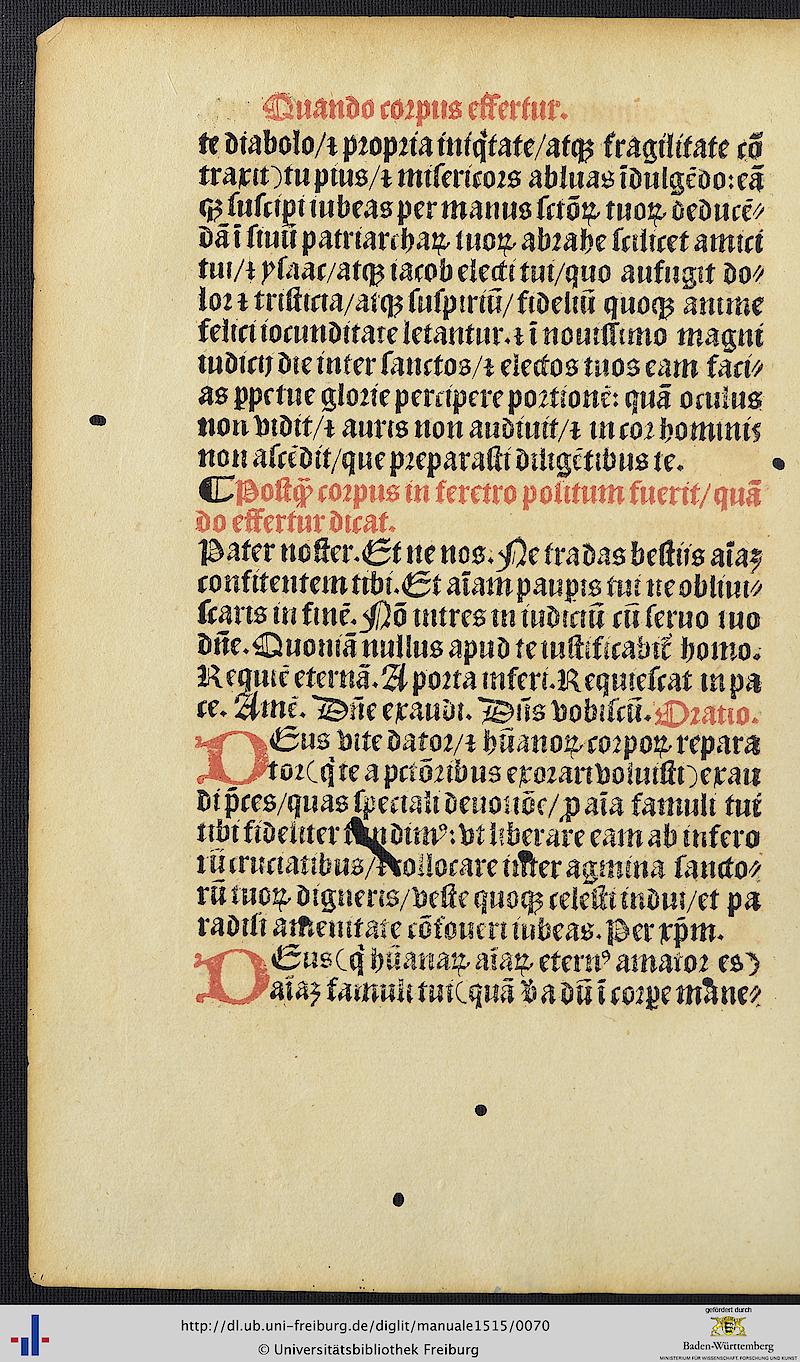 Quando corpus effertur.
te diabolo/⁊ propria iniq̃tate/atqꝫ fragilitate cõ
traxit)tu pius/⁊ misericors abluas ĩdulgẽdo:eã
qꝫ suscipi iubeas per manus sctõꝝ tuoꝝ deducẽ⸗
dã ĩ sinũ patriarchaꝝ tuoꝝ abrahe scilicet amici
tui/⁊ ysaac/atqꝫ iacob electi tui/quo aufugit do⸗
lor ⁊ tristicia/atqꝫ suspiriũ/fideliũ quoqꝫ anime
felici iocunditate letantur.⁊ ĩ nouissimo magni
iudicij die inter sanctos/⁊ electos tuos eam faci⸗
as ꝑpetue glorie percipere portionẽ: quã oculus
non vidit/⁊ auris non audiuit/⁊ in cor hominis
non ascẽdit/que preparasti diligẽtibus te.
¶Postq̃ corpus in feretro positum fuerit/quã
do effertur dicat.
Pater noster.Et ne nos.Ne tradas bestijs aĩaꝫ
confitentem tibi.Et aĩam pauꝑis tui ne obliui⸗
scaris in finẽ.Nõ intres in iudiciũ cũ seruo tuo
dñe.Quoniã nullus apud te iustificabit᷑ homo.
Requiẽ eternã.A porta inferi.Requiescat in pa
ce. Amẽ. Dñe exaudi. Dñs vobiscũ.Oratio.
DEus vite dator/⁊ hũanoꝝ corpoꝝ repara
tor(q̃ te a pctõribus exorari voluisti)exau
di p̃ces/quas speciali deuotiõe/ꝓ aĩa famuli tui
tibi fideliter fundimꝰ:vt liberare eam ab infero
rũ cruciatibus/⁊ collocare inter agmina sancto⸗
rũ tuoꝝ digneris/veste quoqꝫ celesti indui/et pa
radisi amenitate cõfoueri iubeas.Per xp̃m.
DEus(q̃ hũanaꝝ aĩaꝝ eternꝰ amator es)
aĩaꝫ famuli tui(quã v̾a dũ ĩ corpe mane⸗
http://dl.ub.uni-freiburg.de/diglit/manuale1515/0070
© Universitätsbibliothek Freiburg
gefördert durch
Baden-Württemberg
MINISTERIUM FÜR WISSENSCHAFT, FORSCHUNG UND KUNST